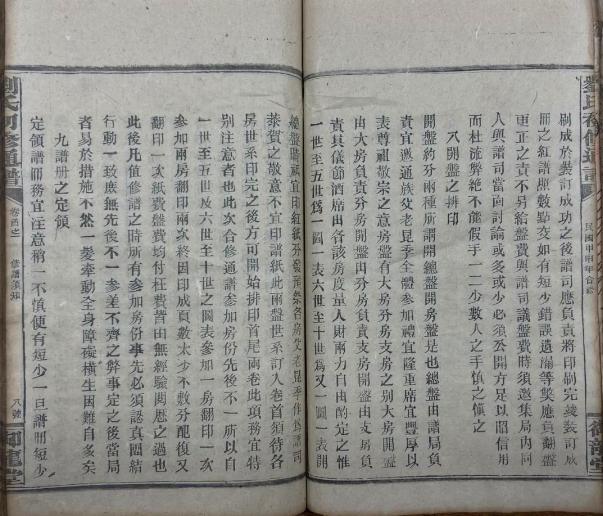 劉氏初修通譜
民國甲申年合修
御龍堂
刷成於裝訂成功之後譜司應負責將印刷完竣裝訂成
冊之紅譜照數點交如有短少錯誤遺漏等獘應負翻盤
更正之責不另給盤費與譜司議盤費時須邀集局內同
人與譜司當面討論或多或少必須公開方足以昭信用
而杜流弊絕不能假手一二少數人之手慎之慎之
八開盤之排印
開盤約分兩種所謂開總盤開房盤是也總盤由譜局負
責宜邀通族父老昆季全體參加禮宜隆重席宜豐厚以
表尊祖敬宗之意房盤有大房分房支房之別大房開盤
由大房負責分房開盤由分房負責支房開盤由支房負
責其儀節酒席由各該房度量人財兩力自由酌定之惟
一世至五世爲一圖一表六世至十世爲又一圖一表開
總盤時祇宜印紅紙分發
恭賀之敬意不宜印譜紙此兩盤世系訂入卷首須待各
房世系印完之後方可開始排印首尾兩卷此項務宜特
別注意者也此次合修通譜參加房份先後不一所以自
一世至五世及六世至十世之圖表參加一房翻印一次
參加兩房翻印兩次終因印成頁數太少不敷分配復又
翻印一次紙費雜費均付枉費皆由無經驗閱歷之過也
此後凡值修譜之時所有參加房份事先必須認真團結
行動一致庶無先後不一參差不齊之弊事定之後當局
者易於措施不然一髮牽動全身障礙橫生因難自多矣
九譜册之定領
定領譜冊務宜注意稍一不慎便有短少一旦譜冊短少
劉氏初修通譜
卷首之
修譜須知
八號
御龍堂